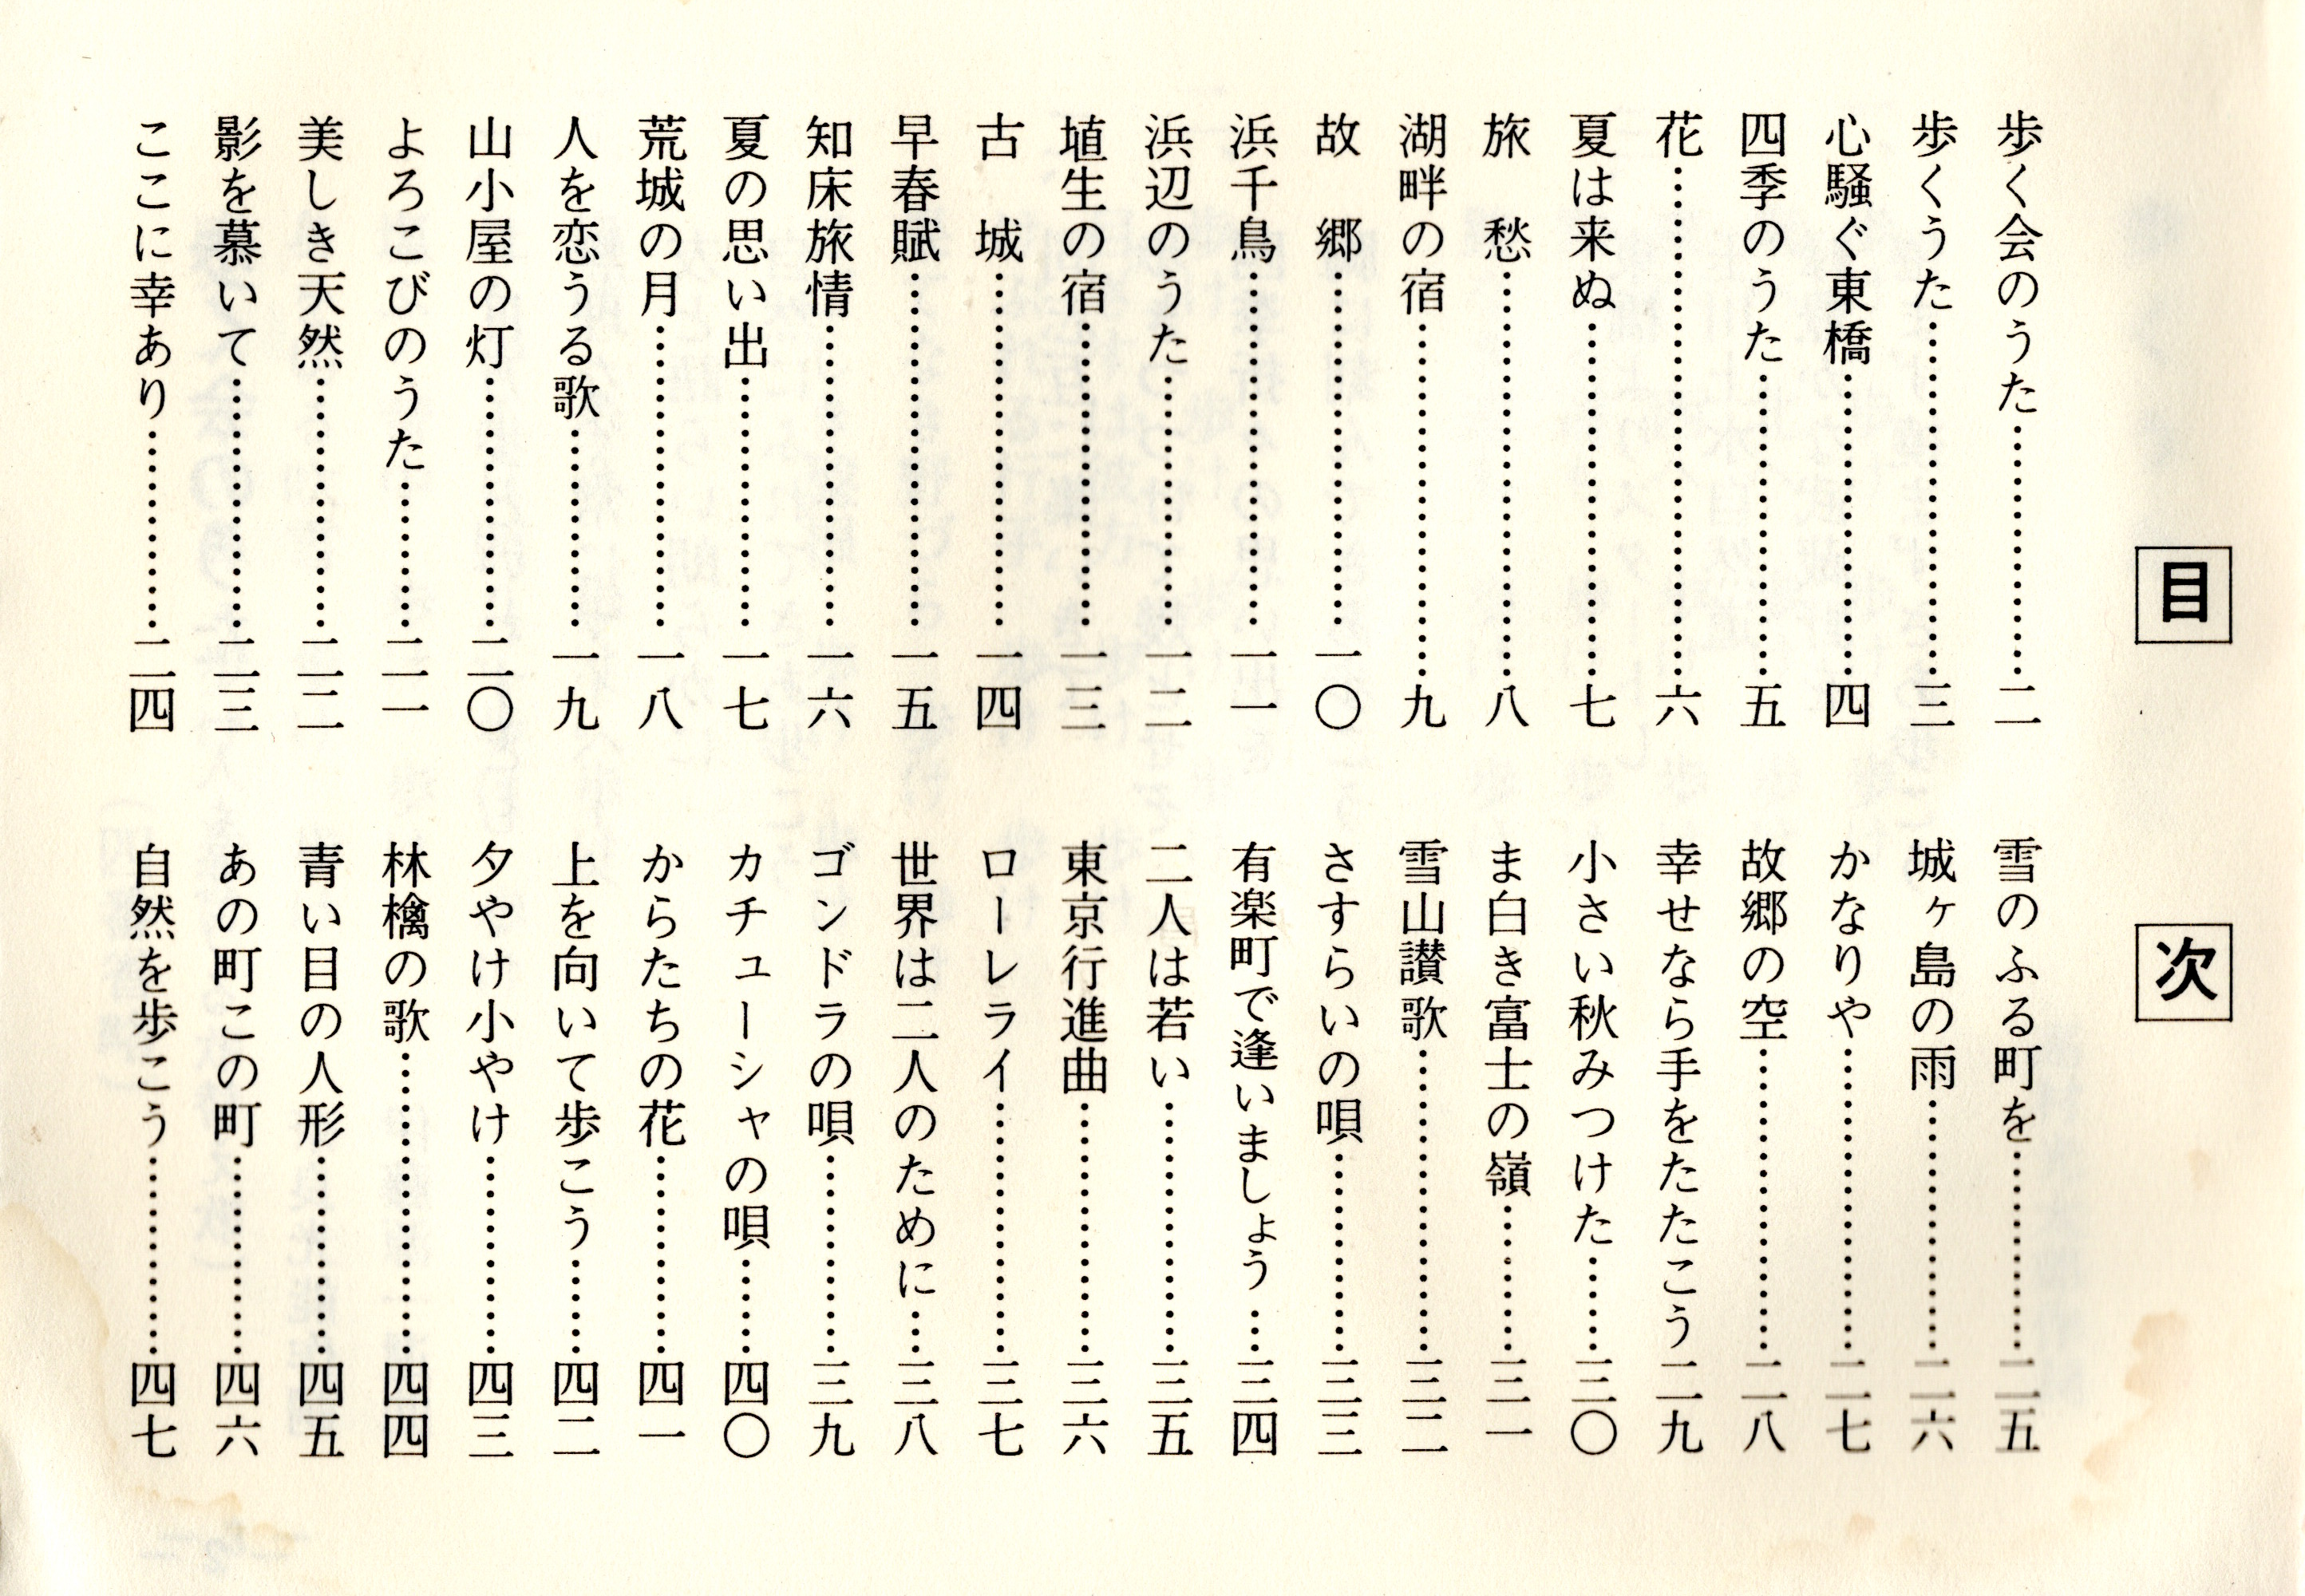 目次
歩く会のうた……………二
歩くうた……………三
心騒ぐ東橋……………四
四季のうた……………五
花……………六
夏は来ぬ……………七
旅　愁……………八
湖畔の宿……………九
故　郷……………一〇
浜千鳥……………一一
浜辺のうた……………一二
埴生の宿……………一三
古　城……………一四
早春賦……………一五
知床旅情……………一六
夏の思い出……………一七
荒城の月……………一八
人を恋うる歌……………一九
山小屋の灯……………二〇
よろこびのうた……………二一
美しき天然……………二二
影を慕いて……………二三
ここに幸あり……………二四
雪のふる町を……………二五
城ヶ島の雨……………二六
かなりや……………二七
故郷の空……………二八
幸せなら手をたたこう二九
小さい秋みつけた……三〇
ま白き富士の嶺………三一
雪山讃歌……………三二
さすらいの唄……………三三
有楽町で逢いましょう…三四
二人は若い……………三五
東京行進曲……………三六
ローレライ……………三七
世界は二人のために……三八
ゴンドラの唄……………三九
カチューシャの唄……四〇
からたちの花……………四一
上を向いて歩こう……四二
夕やけ小やけ……………四三
林檎の歌……………四四
青い目の人形……………四五
あの町この町……………四六
自然を歩こう……………四七